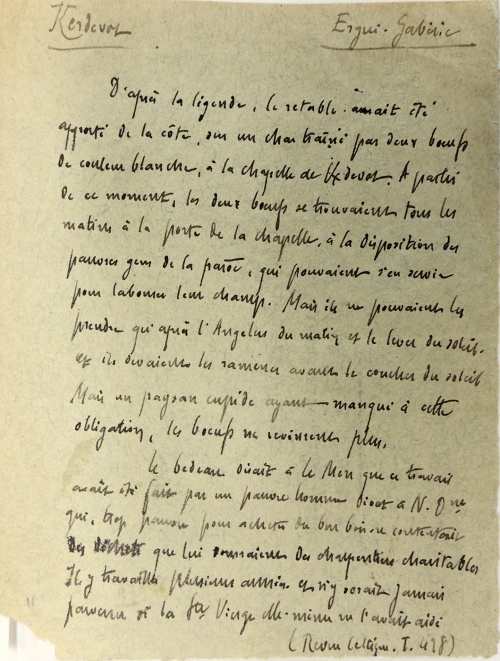 Kerdevot Ergué-Gabéric
D'après la légende, le retable aurait été
apporté de la côte, sur un char traîné par deux boeufs
de couleur blanche, à la chapelle de Kerdevot. A partir
de ce moment, les deux boeufs se trouvaient tous les
matins à la porte de la chapelle, à la disposition des
pauvres gens de la paroisse, qui pouvaient s'en servir
pour labourer leur champ. Mais ils ne pouvaient les
prendre qu'après l'Angelus du matin et le lever du soleil.
et ils devaient les ramener avant le coucher du soleil
Mais un paysan cupide ayant manqué à cette
obligation, les boeufs ne revinrent plus.
le bedeau disait à le Men que ce travail
avait été fait par un pauvre homme dévot à N. D
qui, trop pauvre pour acheter du bon bois se contentait
des déchets que lui donnaient des charpentiers charitables
Il y travailla plusieurs années et n'y serait jamais
parvenu si la Ste Vierge elle-même ne l'avait aidé
(Revue Celtique. T. 428)